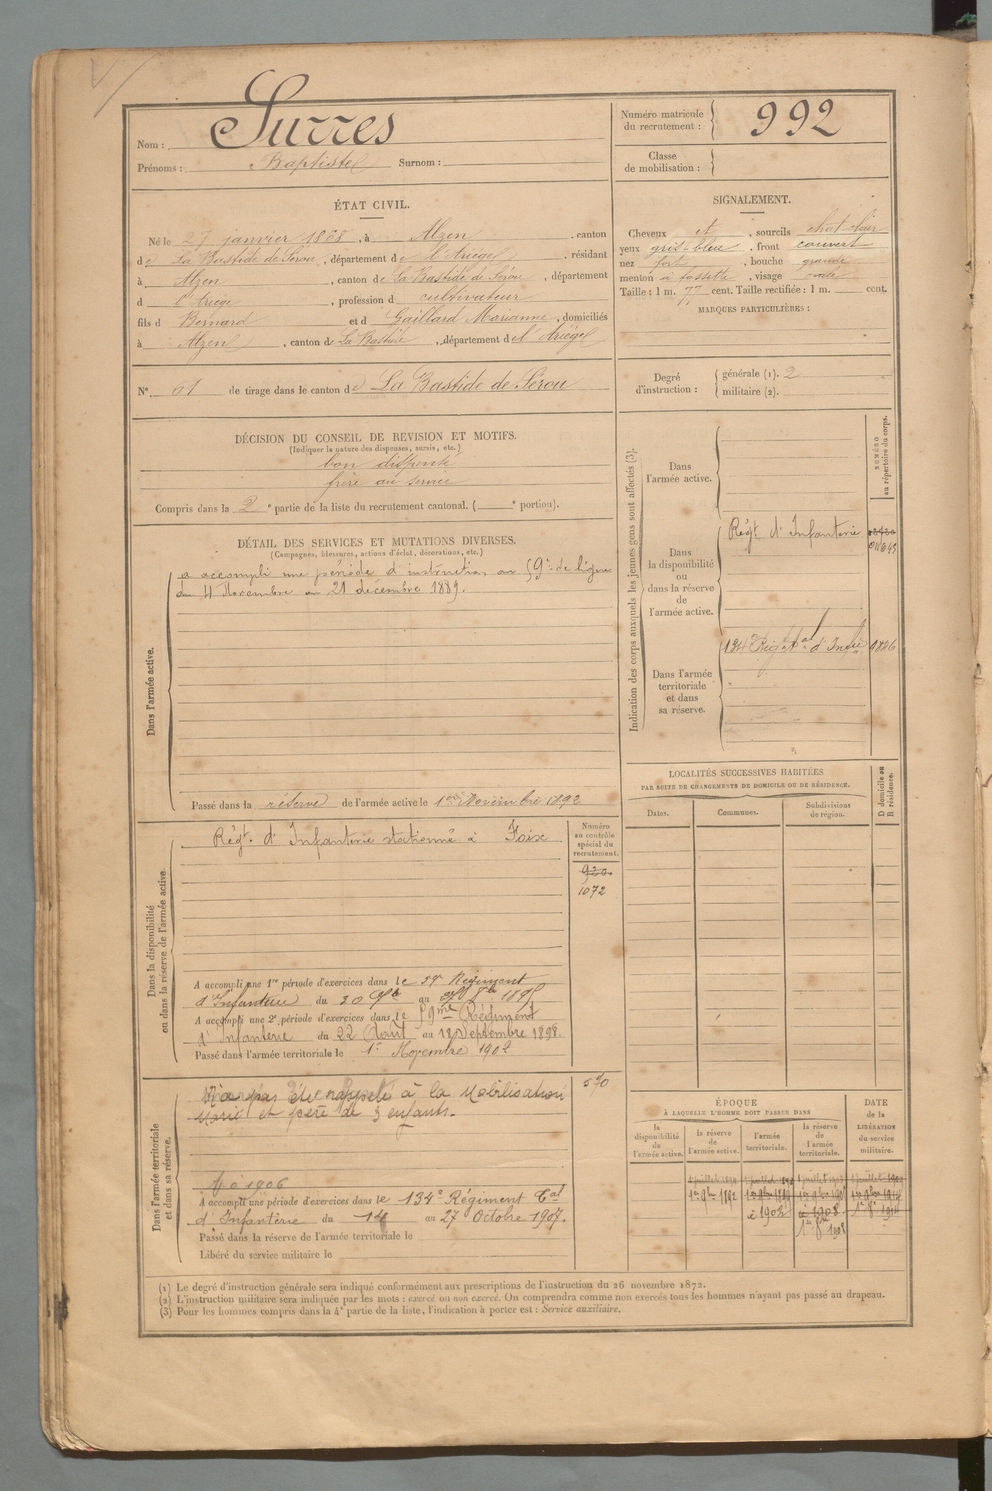 Nom : Surres
Prénoms : Baptiste Surnom :
Numéro matricule du recrutement : 992
Classe de mobilisation :
ÉTAT CIVIL.
Né le 27 janvier 1868, à Alzen, canton
de La Bastide de Sérou, département de l'Ariège, résidant
à Alzen, canton de La Bastide de Sérou, département
d l'Ariège, profession d cultivateur
fils d Bernard et d Gaillard Marianne, domiciliés
à Alzen, canton de La Bastide, département de l'Ariège
N° 01 de tirage dans le canton de La Bastide de Sérou
SIGNALEMENT.
Cheveux et, sourcils chat clair
yeux gris-bleu, front couvert
nez fort, bouche grande
menton à fossette, visage ovale
Taille : 1 m. 77 cent. Taille rectifiée : 1 m. cent.
MARQUES PARTICULIÈRES :
Degré d'instruction : générale (1). 2
militaire (2).
DÉCISION DU CONSEIL DE REVISION ET MOTIFS.
(Indiquer la nature des dispenses, sursis, etc.)
bon dispensé
frère au service
Compris dans la 2e partie de la liste du recrutement cantonal. ( e portion).
DÉTAIL DES SERVICES ET MUTATIONS DIVERSES.
(Campagnes, blessures, actions d'éclat, décorations, etc.)
Dans l'armée active.
a accompli une période d'instruction au 59e de ligne
du 4 Novembre au 21 décembre 1889.
Passé dans la réserve de l'armée active le 1er Novembre 1892
Indication des corps auxquels les jeunes gens sont affectés (3).
NUMÉRO au répertoire du corps.
Dans l'armée active.
Dans la disponibilité ou dans la réserve de l'armée active.
Régt d'Infanterie
Dans l'armée territoriale et dans sa réserve.
134 Régt tal d'Infie 1846
LOCALITÉS SUCCESSIVES HABITÉES
PAR SUITE DE CHANGEMENTS DE DOMICILE OU DE RÉSIDENCE.
Dates. Communes. Subdivisions de région. D domicile ou R résidence.
Dans la disponibilité ou dans la réserve de l'armée active.
Numéro au contrôle spécial du recrutement.
Régt. d'Infanterie stationné à Foix
930
1072
A accompli une 1re période d'exercices dans le 59e Régiment
d'Infanterie du 20 au 1895
A accompli une 2e période d'exercices dans le 59me Régiment
d'Infanterie du 22 Août au 18 Septembre 1898.
Passé dans l'armée territoriale le 1er Novembre 1902
Dans l'armée territoriale et dans sa réserve.
N'a pas été rappelé à la Mobilisation
Marié et père de 3 enfants.
570
1906
A accompli une période d'exercices dans le 134e Régiment Tal
d'Infanterie du 14 au 27 Octobre 1907.
Passé dans la réserve de l'armée territoriale le
Libéré du service militaire le
ÉPOQUE
À LAQUELLE L'HOMME DOIT PASSER DANS
DATE de la LIBÉRATION du service militaire.
la disponibilité de l'armée active.
la réserve de l'armée active.
l'armée territoriale.
la réserve de l'armée territoriale.
1er 9bre 1892
à 1902
à 1908
1er 8bre 1908
(1) Le degré d'instruction générale sera indiqué conformément aux prescriptions de l'instruction du 26 novembre 1872.
(2) L'instruction militaire sera indiquée par les mots : exercé ou non exercé. On comprendra comme non exercés tous les hommes n'ayant pas passé au drapeau.
(3) Pour les hommes compris dans la 4e partie de la liste, l'indication à porter est : Service auxiliaire.